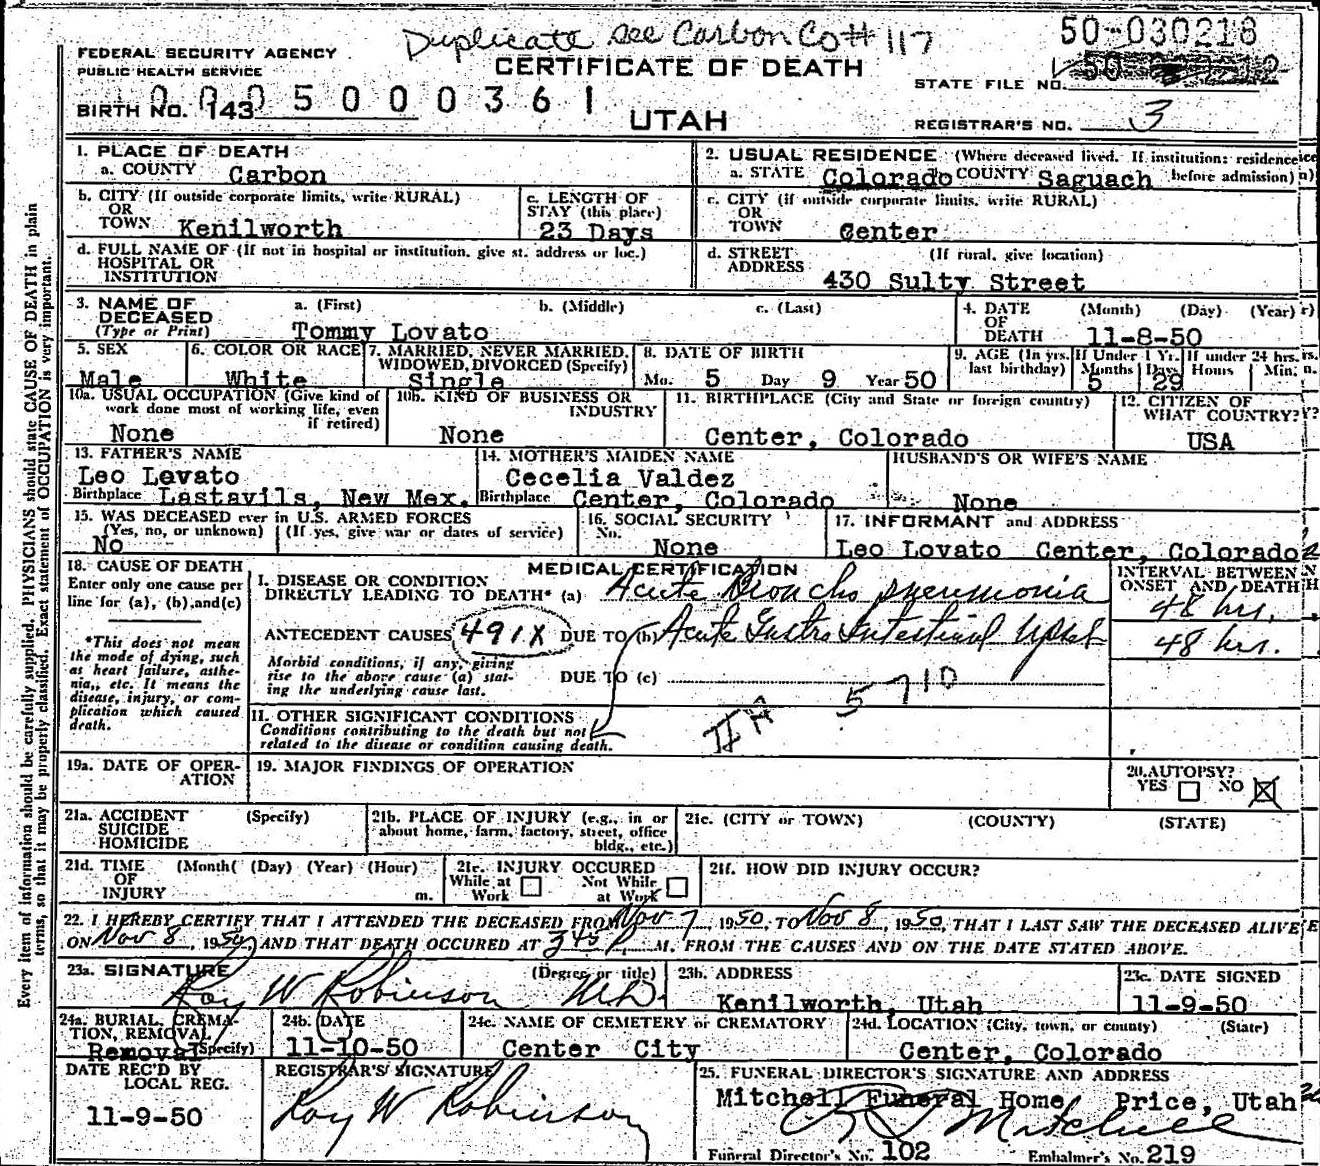 Duplicate see Carbon Co # 117
50-030218
FEDERAL SECURITY AGENCY
PUBLIC HEALTH SERVICE
CERTIFICATE OF DEATH
STATE FILE NO. 50
0005000361
BIRTH NO. 143
UTAH
REGISTRAR'S NO. 3
Every item of information should be carefully supplied. PHYSICIANS should state CAUSE OF DEATH in plain
terms, so that it may be properly classified. Exact statement of OCCUPATION is very important.
1. PLACE OF DEATH
a. COUNTY Carbon
2. USUAL RESIDENCE (Where deceased lived. If institution: residence
a. STATE Colorado COUNTY Saguach before admission)
b. CITY (If outside corporate limits, write RURAL)
OR
TOWN Kenilworth
c. LENGTH OF
STAY (this place)
23 Days
c. CITY (if outside corporate limits, write RURAL)
OR
TOWN Center
d. FULL NAME OF (If not in hospital or institution, give st. address or loc.)
HOSPITAL OR
INSTITUTION
d. STREET (If rural, give location)
ADDRESS
430 Sulty Street
3. NAME OF
DECEASED
(Type or Print)
a. (First) b. (Middle) c. (Last)
Tommy Lovato
4. DATE (Month) (Day) (Year)
OF
DEATH 11-8-50
5. SEX
Male
6. COLOR OR RACE
White
7. MARRIED, NEVER MARRIED,
WIDOWED, DIVORCED (Specify)
Single
8. DATE OF BIRTH
Mo. 5 Day 9 Year 50
9. AGE (In yrs. last birthday)
If Under 1 Yr.
Months 5 Days 29
If under 24 hrs.
Hours Min.
10a. USUAL OCCUPATION (Give kind of
work done most of working life, even
if retired)
None
10b. KIND OF BUSINESS OR
INDUSTRY
None
11. BIRTHPLACE (City and State or foreign country)
Center, Colorado
12. CITIZEN OF
WHAT COUNTRY?
USA
13. FATHER'S NAME
Leo Lovato
Birthplace Lastavils, New Mex.
14. MOTHER'S MAIDEN NAME
Cecelia Valdez
Birthplace Center, Colorado
HUSBAND'S OR WIFE'S NAME
None
15. WAS DECEASED ever in U.S. ARMED FORCES
(Yes, no, or unknown) (If yes, give war or dates of service)
No
16. SOCIAL SECURITY
No.
None
17. INFORMANT and ADDRESS
Leo Lovato Center, Colorado
18. CAUSE OF DEATH
Enter only one cause per
line for (a), (b), and (c)
*This does not mean
the mode of dying, such
as heart failure, asthe-
nia, etc. It means the
disease, injury, or com-
plication which caused
death.
MEDICAL CERTIFICATION
I. DISEASE OR CONDITION
DIRECTLY LEADING TO DEATH* (a) Acute Broncho pneumonia
ANTECEDENT CAUSES 491X DUE TO (b) Acute Gastro Intestinal Upset
Morbid conditions, if any, giving
rise to the above cause (a) stat-
ing the underlying cause last.
DUE TO (c)
5710
IIA
II. OTHER SIGNIFICANT CONDITIONS
Conditions contributing to the death but not
related to the disease or condition causing death.
INTERVAL BETWEEN
ONSET AND DEATH
48 hrs.
48 hrs.
19a. DATE OF OPER-
ATION
19. MAJOR FINDINGS OF OPERATION
20. AUTOPSY?
YES NO
21a. ACCIDENT (Specify)
SUICIDE
HOMICIDE
21b. PLACE OF INJURY (e.g., in or
about home, farm, factory, street, office
bldg., etc.)
21c. (CITY or TOWN) (COUNTY) (STATE)
21d. TIME (Month( (Day) (Year) (Hour)
OF
INJURY m.
21e. INJURY OCCURED
While at Work Not While at Work
21f. HOW DID INJURY OCCUR?
22. I HEREBY CERTIFY THAT I ATTENDED THE DECEASED FROM Nov 7, 1950, TO Nov 8, 1950, THAT I LAST SAW THE DECEASED ALIVE
ON Nov 8, 1950, AND THAT DEATH OCCURED AT 3 45 P M, FROM THE CAUSES AND ON THE DATE STATED ABOVE.
23a. SIGNATURE (Degree or title)
Roy W Robinson M.D.
23b. ADDRESS
Kenilworth, Utah
23c. DATE SIGNED
11-9-50
24a. BURIAL, CREMA-
TION, REMOVAL
Removal (Specify)
24b. DATE
11-10-50
24c. NAME OF CEMETERY or CREMATORY
Center City
24d. LOCATION (City, town, or county) (State)
Center, Colorado
DATE REC'D BY
LOCAL REG.
11-9-50
REGISTRAR'S SIGNATURE
Roy W Robinson
25. FUNERAL DIRECTOR'S SIGNATURE AND ADDRESS
Mitchell Funeral Home Price, Utah
Mitchell
Funeral Director's No. 102 Embalmer's No. 219